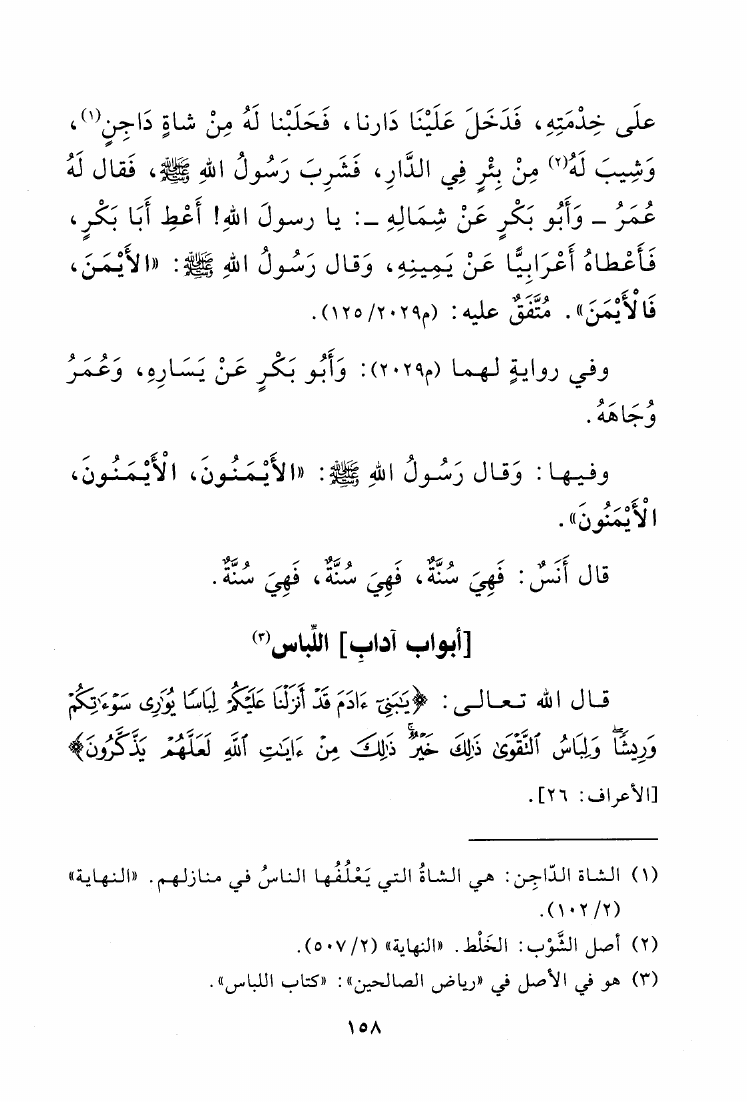 علَى خِدْمَتِهِ، فَدَخَلَ عَلَيْنَا دَارنا، فَحَلَبْنا لَهُ مِنْ شاةٍ دَاجِنٍ(١)،
وَشِيبَ لَهُ(٢) مِنْ بِئْرٍ فِي الدَّارِ، فَشَرِبَ رَسُولُ اللهِ ﷺ، فَقال لَهُ
عُمَرُ ـ وَأَبُو بَكْرٍ عَنْ شِمَالِهِ ـ: يا رسولَ اللهِ! أَعْطِ أَبَا بَكْرٍ،
فَأَعْطاهُ أَعْرَابِيًّا عَنْ يَمِينِهِ، وَقال رَسُولُ اللهِ ﷺ: «الأَيْمَنَ،
فَالْأَيْمَنَ». مُتَّفَقٌ عليه: (م١٢٥/٢٠٢٩).
وفي روايةٍ لهما (م٢٠٢٩): وَأَبُو بَكْرٍ عَنْ يَسَارِهِ، وَعُمَرُ
وُجَاهَهُ.
وفيها: وَقال رَسُولُ اللهِ ﷺ: «الأَيْمَنُونَ، الْأَيْمَنُونَ،
الْأَيْمَنُونَ».
قال أَنَسٌ: فَهِيَ سُنَّةٌ، فَهِيَ سُنَّةٌ، فَهِيَ سُنَّةٌ.
[أبواب آدابِ] اللِّباس(٣)
قال الله تعالى: ﴿يَٰبَنِىٓ ءَادَمَ قَدۡ أَنزَلۡنَا عَلَيۡكُمۡ لِبَاسٗا يُوَٰرِى سَوۡءَٰتِكُمۡ
وَرِيشٗاۖ وَلِبَاسُ ٱلتَّقۡوَىٰ ذَٰلِكَ خَيۡرٞۚ ذَٰلِكَ مِنۡ ءَايَٰتِ ٱللَّهِ لَعَلَّهُمۡ يَذَّكَّرُونَ﴾
[الأعراف: ٢٦].
(١) الشاة الدّاجِن: هي الشاةُ التي يَعْلُفُها الناسُ في منازلهم. «النهاية»
(١٠٢/٢).
(٢) أصل الشَّوْب: الخَلْط. «النهاية» (٥٠٧/٢).
(٣) هو في الأصل في «رياض الصالحين»: «كتاب اللباس».
١٥٨